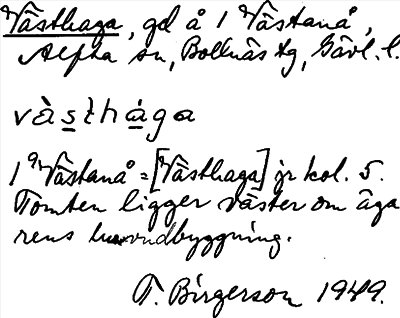 Västhaga, gd å 1 Västanå,
Alfta sn, Bollnäs tg, Gävl. l.
vàsthága
1 Västanå = [Västhaga] jr kol. 5.
Tomten ligger väster om äga
rens huvudbyggning.
T. Birgerson 1949.